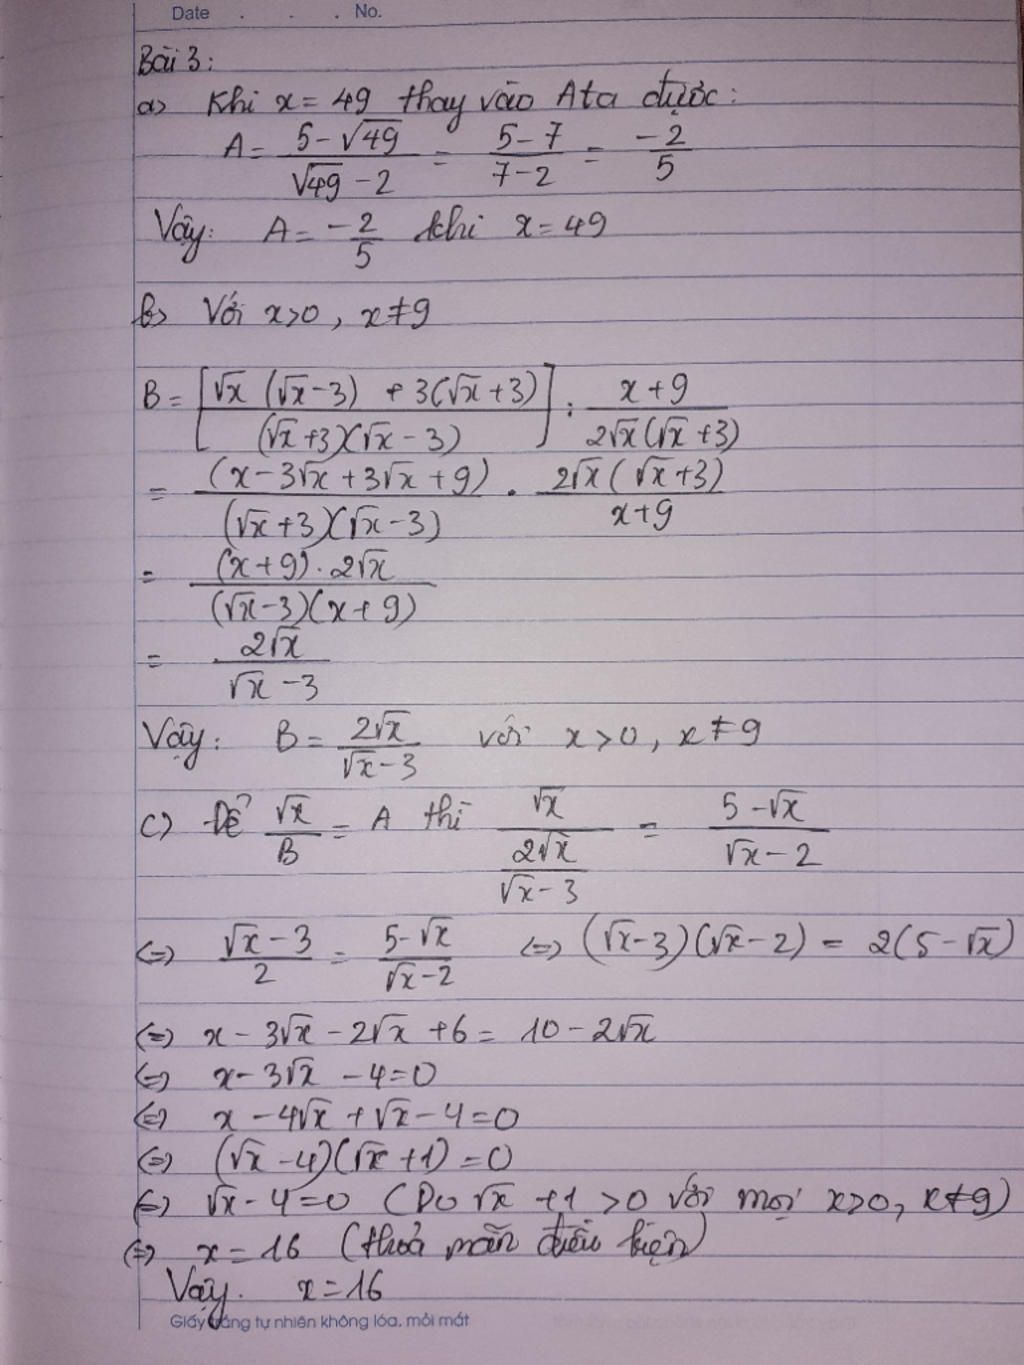 Date . . . No.
Bài 3:
a> Khi x = 49 thay vào A ta được:
A = (5 - √49)/(√49 - 2) = (5 - 7)/(7 - 2) = -2/5
Vậy: A = -2/5 khi x = 49
b> Với x>0, x≠9
B = [(√x (√x - 3) + 3(√x + 3))/((√x + 3)(√x - 3))] : (x + 9)/(2√x(√x + 3))
= (x - 3√x + 3√x + 9)/((√x + 3)(√x - 3)) . (2√x(√x + 3))/(x + 9)
= ((x + 9) . 2√x)/((√x - 3)(x + 9))
= 2√x/(√x - 3)
Vậy: B = 2√x/(√x - 3) với x > 0, x ≠ 9
c) Để √x/B = A thì √x/(2√x/(√x - 3)) = (5 - √x)/(√x - 2)
(=) (√x - 3)/2 = (5 - √x)/(√x - 2) (=) (√x - 3)(√x - 2) = 2(5 - √x)
(=) x - 3√x - 2√x + 6 = 10 - 2√x
(=) x - 3√x - 4 = 0
(=) x - 4√x + √x - 4 = 0
(=) (√x - 4)(√x + 1) = 0
(=) √x - 4 = 0 (Do √x + 1 > 0 với mọi x>0, x≠9)
(=) x = 16 (thoả mãn điều kiện)
Vậy. x = 16
Giấy trắng tự nhiên không lóa, mỏi mắt